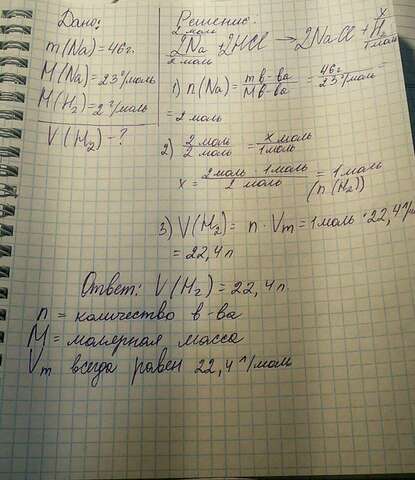 Дано:
m(Na)=46г.
M(Na)=23г/моль
M(H₂)=2г/моль
V(H₂)-?
Решение:
2моль x
2Na + 2HCl → 2NaCl + H₂
2моль 1моль
1) n(Na) = m в-ва / M в-ва = 46г. / 23г/моль =
= 2 моль
2) 2 моль / 2 моль = x моль / 1 моль
x = 2 моль · 1 моль / 2 моль = 1 моль
(n(H₂))
3) V(H₂) = n · Vm = 1 моль · 22,4 л/
= 22,4 л
Ответ: V(H₂) = 22,4 л.
n = количество в-ва
M = молярная масса
Vm всегда равен 22,4 л/моль